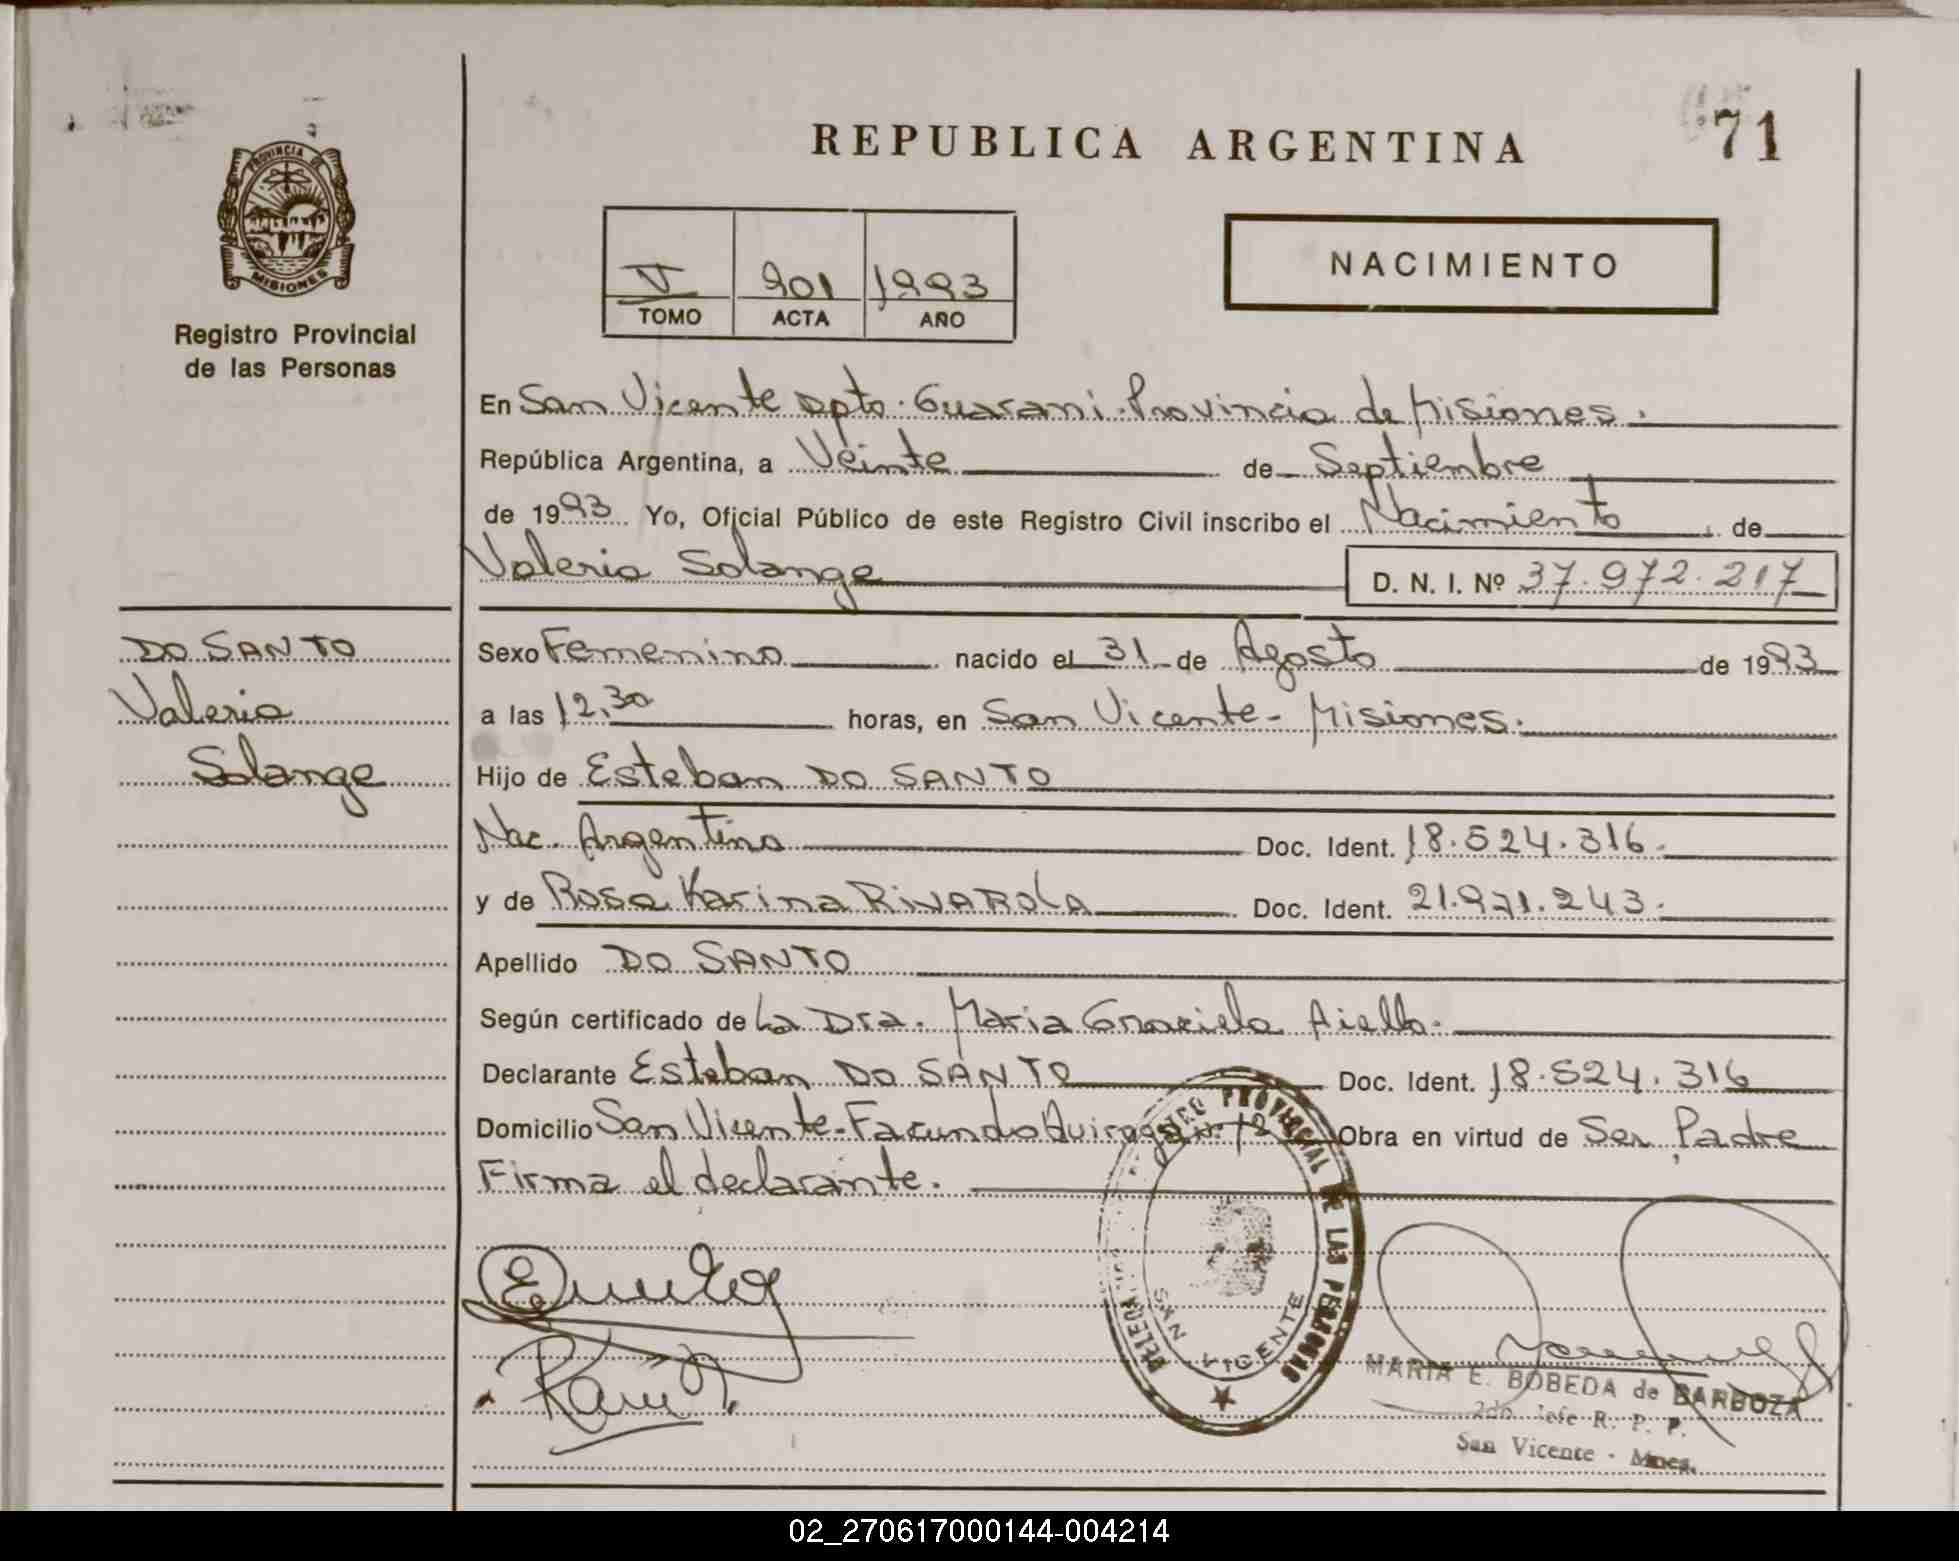 REPUBLICA ARGENTINA
71
PROVINCIA DE
MISIONES
Registro Provincial
de las Personas
V 901 1993
TOMO ACTA AÑO
NACIMIENTO
En San Vicente Dpto. Guarani. Provincia de Misiones.
República Argentina, a Veinte de Septiembre
de 1993. Yo, Oficial Público de este Registro Civil inscribo el Nacimiento de
Valeria Solange D. N. I. Nº 37.972.217
DO SANTO
Valeria
Solange
Sexo Femenino nacido el 31 de Agosto de 1993
a las 12,30 horas, en San Vicente - Misiones.
Hijo de Esteban DO SANTO
Nac. Argentina Doc. Ident. 18.524.316.
y de Rosa Karina RIVAROLA Doc. Ident. 21.971.243.
Apellido DO SANTO
Según certificado de La Dra. Maria Graciela Aiello.
Declarante Esteban DO SANTO Doc. Ident. 18.524.316
Domicilio San Vicente - Facundo Quiroga Nº 12 Obra en virtud de Ser Padre
Firma el declarante.
REGISTRO PROVINCIAL DE LAS PERSONAS
SAN VICENTE
MARIA E. BOBEDA de BARBOZA
2do. Jefe R. P. P.
San Vicente - Mnes.
02_270617000144-004214